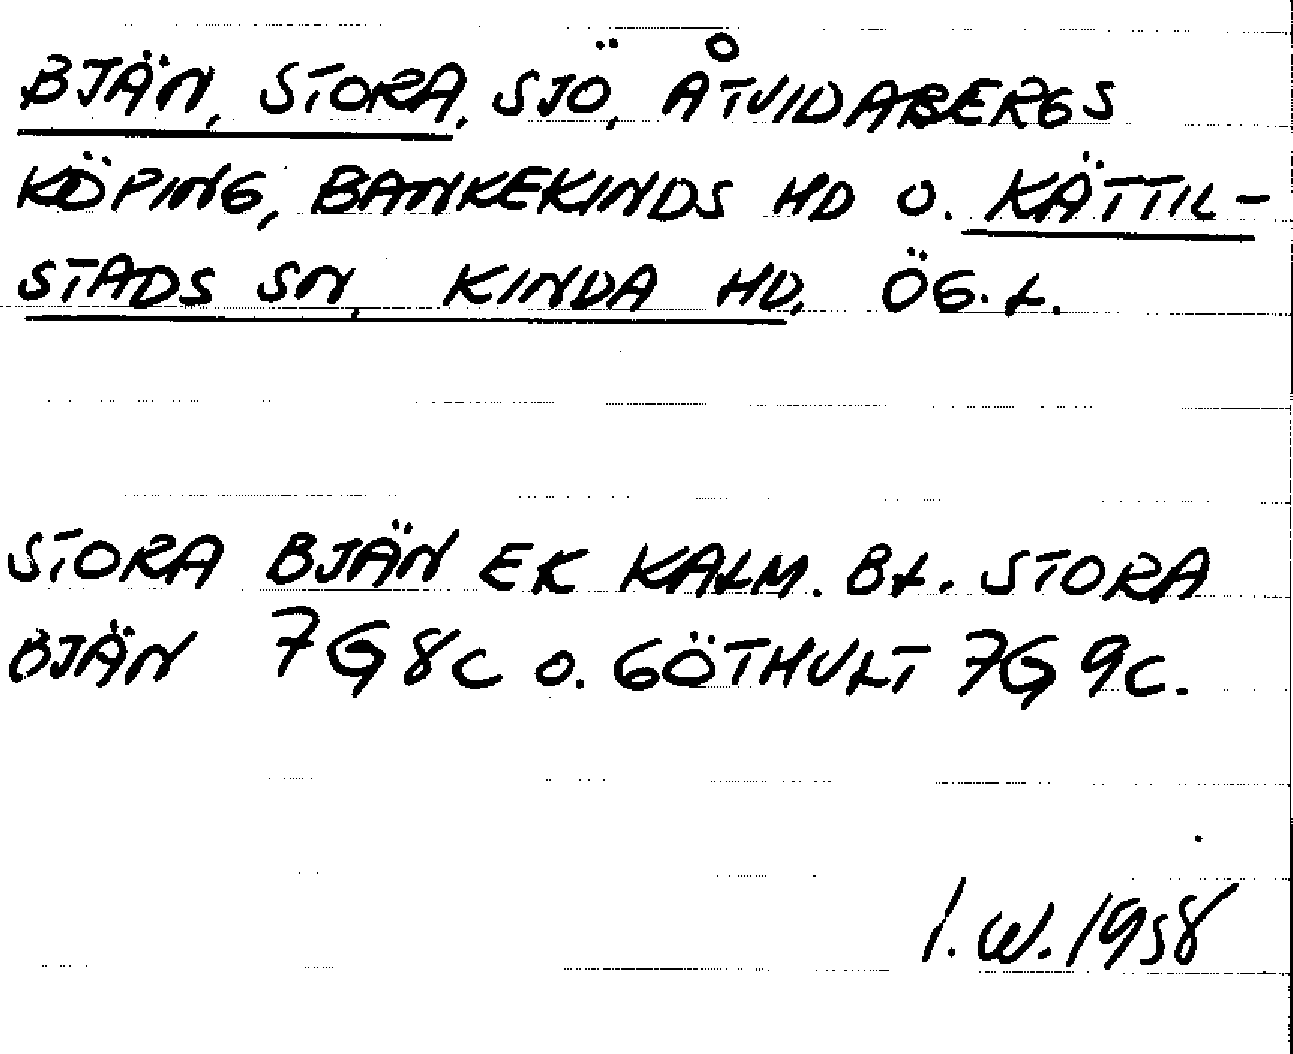 BJÄN, STORA, SJÖ, ÅTVIDABERGS
KÖPING, BANKEKINDS HD O. KÄTTIL-
STADS SN, KINDA HD, ÖG. L.
STORA BJÄN EK KALM. BL. STORA
BJÄN 7G8c o. GÖTHULT 7G9c.
I.W. 1958